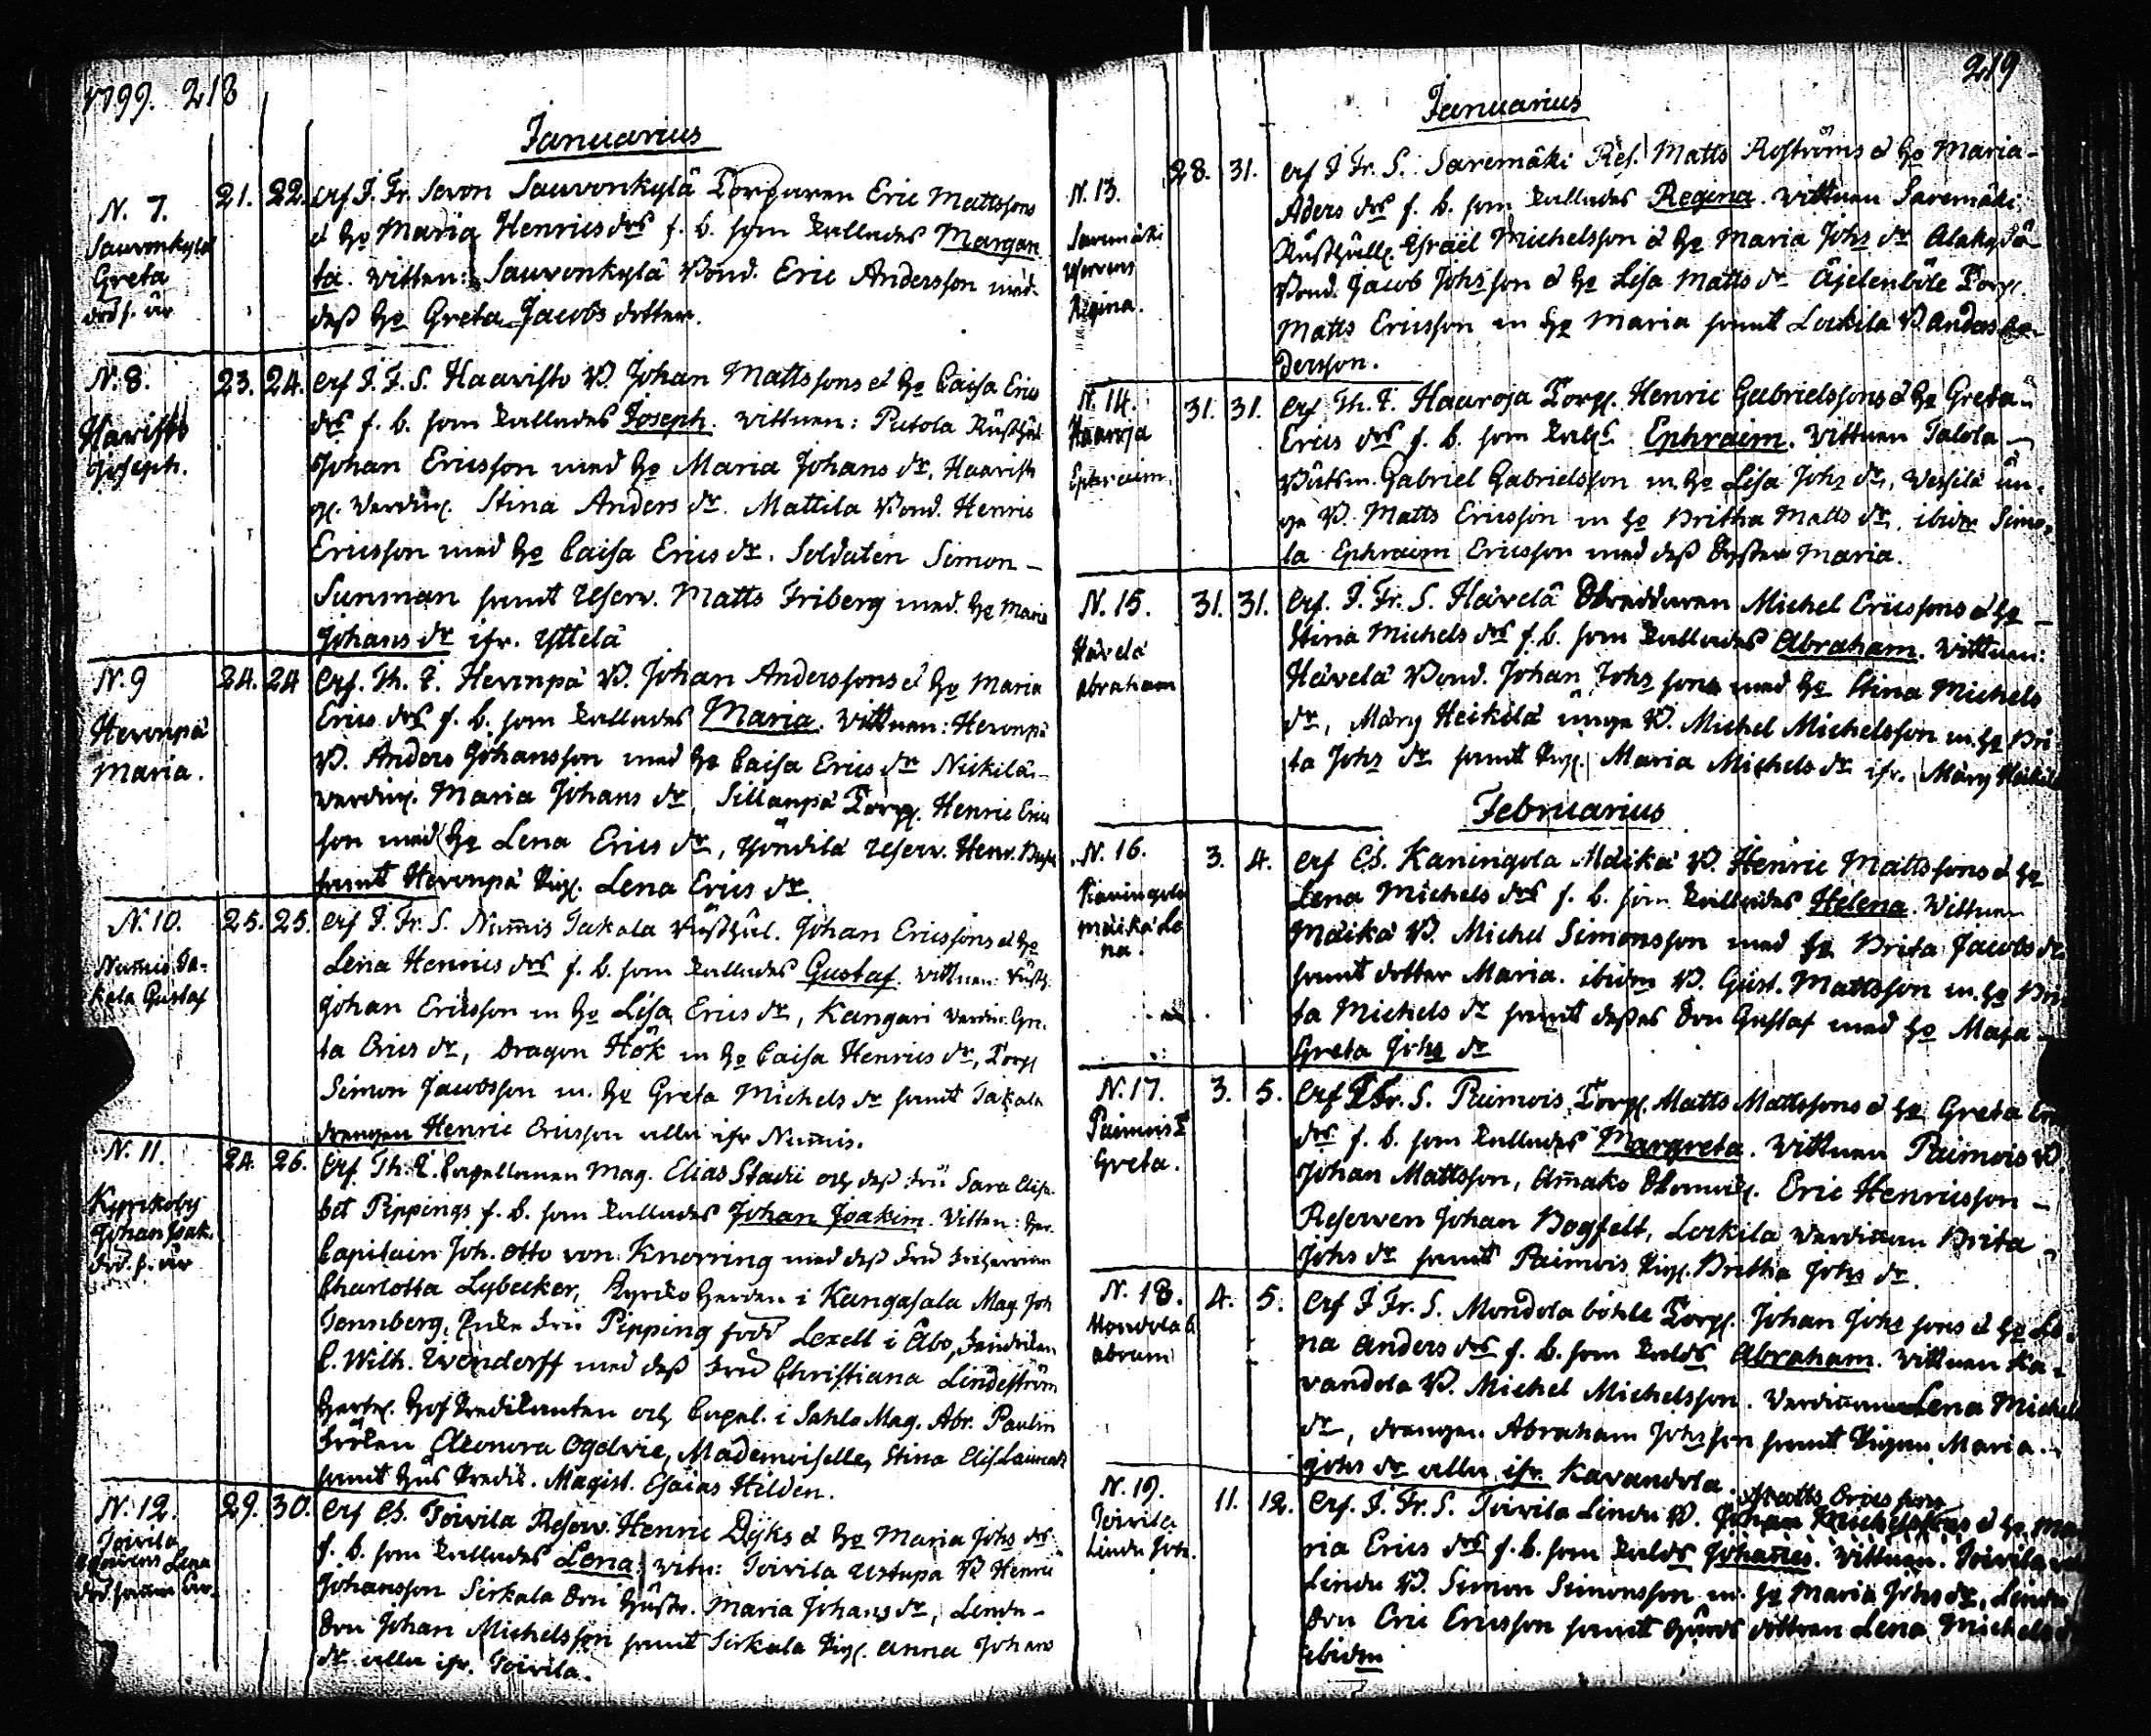 1799. 218
Januarius
N. 7.
Sauvonkylä
Greta
död s. år
21. 22. erf J. Fr. Savon Sauvonkylä Torparen Eric Mattssons
& Ho Maria Henrics drs f. b. som kallades Margare
ta. Vitten: Sauvonkylä Bond. Eric Andersson med
dess Ho Greta Jacobs dotter.
N. 8.
Haavisto
Joseph.
23. 24. erf J. F. S. Haavisto B. Johan Mattssons & Ho Caisa Erics
drs f. b. som kallades Joseph. Vittnen: Putola Rusthål
Johan Ericsson med Ho Maria Johans dr, Haavisto
Stina Anders dr. Mattila Bond. Henric
Ericsson med Ho Caisa Erics dr. Soldaten Simon
Sunman samt Reserv. Matts Friberg med Ho Maria
Johans dr ifr. Yttelä
N. 9
Hevonpä
Maria.
24. 24 Erf. Th. E. Hevonpä B. Johan Anderssons & Ho Maria
Erics drs f. b. som kallades Maria. Vittnen: Hevonpä
B. Anders Johansson med Ho Caisa Erics dr Nickilä
Maria Johans dr, Sillanpä Torp. Henric Erics
son med Ho Lena Erics dr, Reserv. Henr.
samt Hevonpä Pig. Lena Erics dr.
N. 10.
Numis Ta-
kala Gustaf
25. 25. erf J. Fr. S. Numis Takala Rusthål. Johan Ericssons & Ho
Lena Henrics drs f. b. som kallades Gustaf. Vittnen: Rusth.
Johan Ericsson m Ho Lisa Erics dr, Kangari Gre
ta Erics dr, Dragon Hök m Ho Caisa Henrics dr, Torp
Simon Jacobsson m. Ho Greta Michels dr samt Takala
drengen Henric Ericsson alla ifr Numis.
N. 11.
Kyrkoby
Johan Joak.
död s. år
24. 26. Erf. Th. E. Capellanen Mag. Elias Stadii och dess Fru Sara Elisa
bet Pippings f. b. som kallades Johan Joakim. Vitten: Her.
Capitain Joh. Otto von Knorring med dess Fru Friherrinn
Charlotta Lybecker, Kyrko Herden i Kangasala Mag. Joh
Tennberg, Enke Fru Pipping född Lexell i Åbo, Fendriken
C. Wilh. Wendorff med dess Fru Christiana Lindeström
Hof Predikanten och Capel. i Sahla Mag. Abr. Paulin
Fröken Eleonora Ogilvie, Mademoiselle, Stina Elis Laurell
samt Hus Predik. Magist. Esaias Hilden.
N. 12.
Toivila
Reservens Lena
död samma år.
29. 30. Erf Ch. Toivila Reserv. Henric Dyks & Ho Maria Johs drs
f. b. som kallades Lena; vitn: Toivila Ustupa B Henric
Johansson Sirkala Bon Hustr. Maria Johans dr, Lendu
Bon Johan Michelsson samt Sirkala Pig. Anna Johans
dr alla ifr. Toivila.
219
Januarius
N. 13.
Saremäki
Reservens
Regina.
28. 31. erf J Fr. S. Saremäki Res. Matts Roströms & Ho Maria
Aders drs f. b. som kallades Regina. Vittnen Saremäki
Rusthåll. Israel Michelsson & Ho Maria Johs dr Alakylä
Bond. Jacob Johsson & Ho Lisa Matts dr Äjelenböle Torp.
Matts Ericsson m Ho Maria samt Lockila B Anders An
dersson.
N. 14.
Haaroja
Ephraim.
31. 31. Erf. Th. E. Haaroja Torp. Henric Gabrielssons & Ho Greta
Erics drs f. b. som kalls Ephraim. Vittnen Talola
Båtsm. Gabriel Gabrielsson m. Ho Lisa Johs dr, Vessilä un
ge B. Matts Ericsson m Ho Britha Matts dr, ibidm Simo
la Ephraim Ericsson med dess Syster Maria.
N. 15.
Hävelä
Abraham
31. 31. Erf. J. Fr. S. Hävelä Skreddaren Michel Ericssons & Ho
Stina Michels drs f. b. som kallades Abraham. Vittnen:
Hävelä Bond. Johan Johs son med Ho Stina Michels
dr, Märy Heikilä unge B. Michel Michelsson m. Ho Bri
ta Johs dr samt Pig. Maria Michels dr ifr. Märy Heikilä
Februarius
N. 16.
Kaningola
Mäikä Le
na.
3. 4. Erf Ch. Kaningola Mäikä B. Henric Mattssons & Ho
Lena Michels drs f. b. som kallades Helena. Vittnen
Mäikä B. Michel Simonsson med Ho Brita Jacobs dr
samt dotter Maria. ibidm B. Gust. Mattsson m. Ho Bri
ta Michels dr samt desses Son Gustaf med Ho Maja
Greta Johs dr
N. 17.
Paimois T
Greta.
3. 5. Erf J Fr. S. Paimois Torp. Matts Mattssons & Ho Greta Erics
drs f. b. som kallades Margreta. Vittnen Paimois B
Johan Mattsson, Amako Eric Henricsson
Reserven Johan Bogfelt, Lockila Värdinnan Brita
Johs dr samt Paimois Pig. Britha Johs dr.
N. 18.
Mondola b
Abram
4. 5. Erf J Fr. S. Mondola böhle Torp. Johan Johs sons & Ho Le
na Anders drs f. b. som kalds Abraham. Vittnen Ka
vandola B. Michel Michelsson. Värdinnan Lena Michels
dr, drengen Abraham Johs son samt Pigan Maria
Johs dr alla ifr. Kavandola.
N. 19.
Toivila
Lendu Joh.
11. 12. Erf. J. Fr. S. Toivila Lendu B. Matts Ericssons & Ho Ma
ria Erics drs f. b. som kalds Johannes. Vittnen. Toivila
Lendu B. Simon Simonsson m. Ho Maria Johs dr, Lendu
Son Eric Ericsson samt Gårds dottren Lena Michels d
ibidm